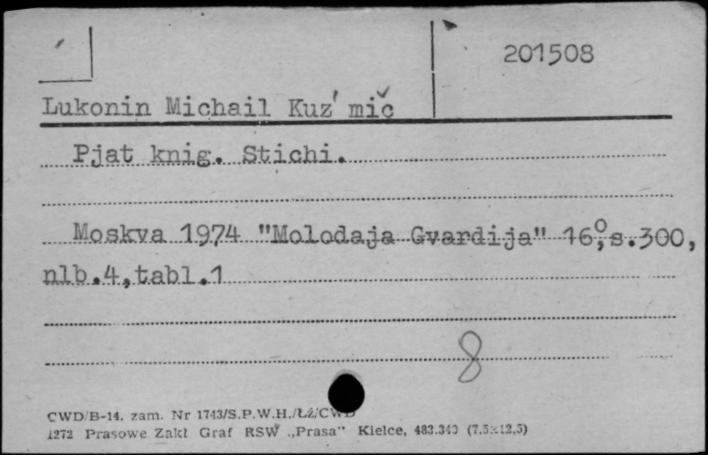 201508
Lukonin Michail Kuz'mič
Pjat knig. Stichi.
Moskva 1974 "Molodaja Gvardija" 16⁰, s.300,
nlb.4,tabl.1
8
CWD/B-14. zam. Nr 1743/S.P.W.H./ŁŹ/CWD
1272 Prasowe Zakł Graf RSW „Prasa" Kielce, 483.340 (7,5×12,5)